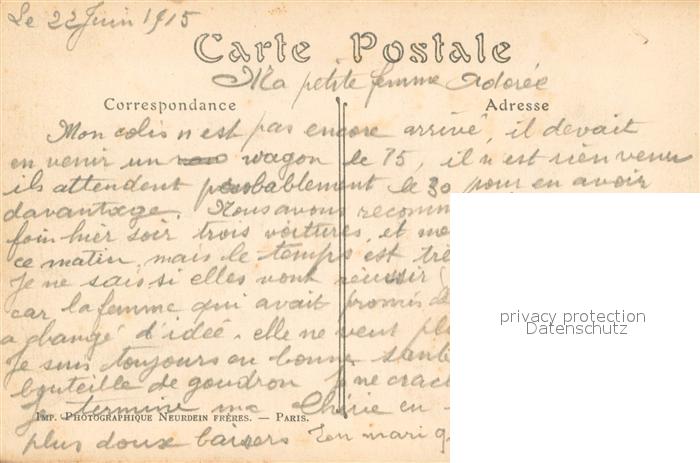 Le 22 Juin 1915
Carte Postale
Ma petite femme Adorée
Correspondance
Adresse
Mon colis n'est pas encore arrivé, il devait
en venir un wagon le 75, il n'est rien venu
ils attendent probablement le 30 pour en avoir
davantage. Nous avons recomm
foin hier soir, trois voitures, et
ce matin, mais le temps est trè
Je ne sais si elles vont réussir
car la femme qui avait promis de
a changé d'idée, elle ne veut plu
Je suis toujours en bonne santé
bouteille de goudron je ne crac
Je termine ma Chérie en
IMP. PHOTOGRAPHIQUE NEURDEIN FRÈRES. — PARIS.
plus doux baisers Ton mari q
privacy protection
Datenschutz